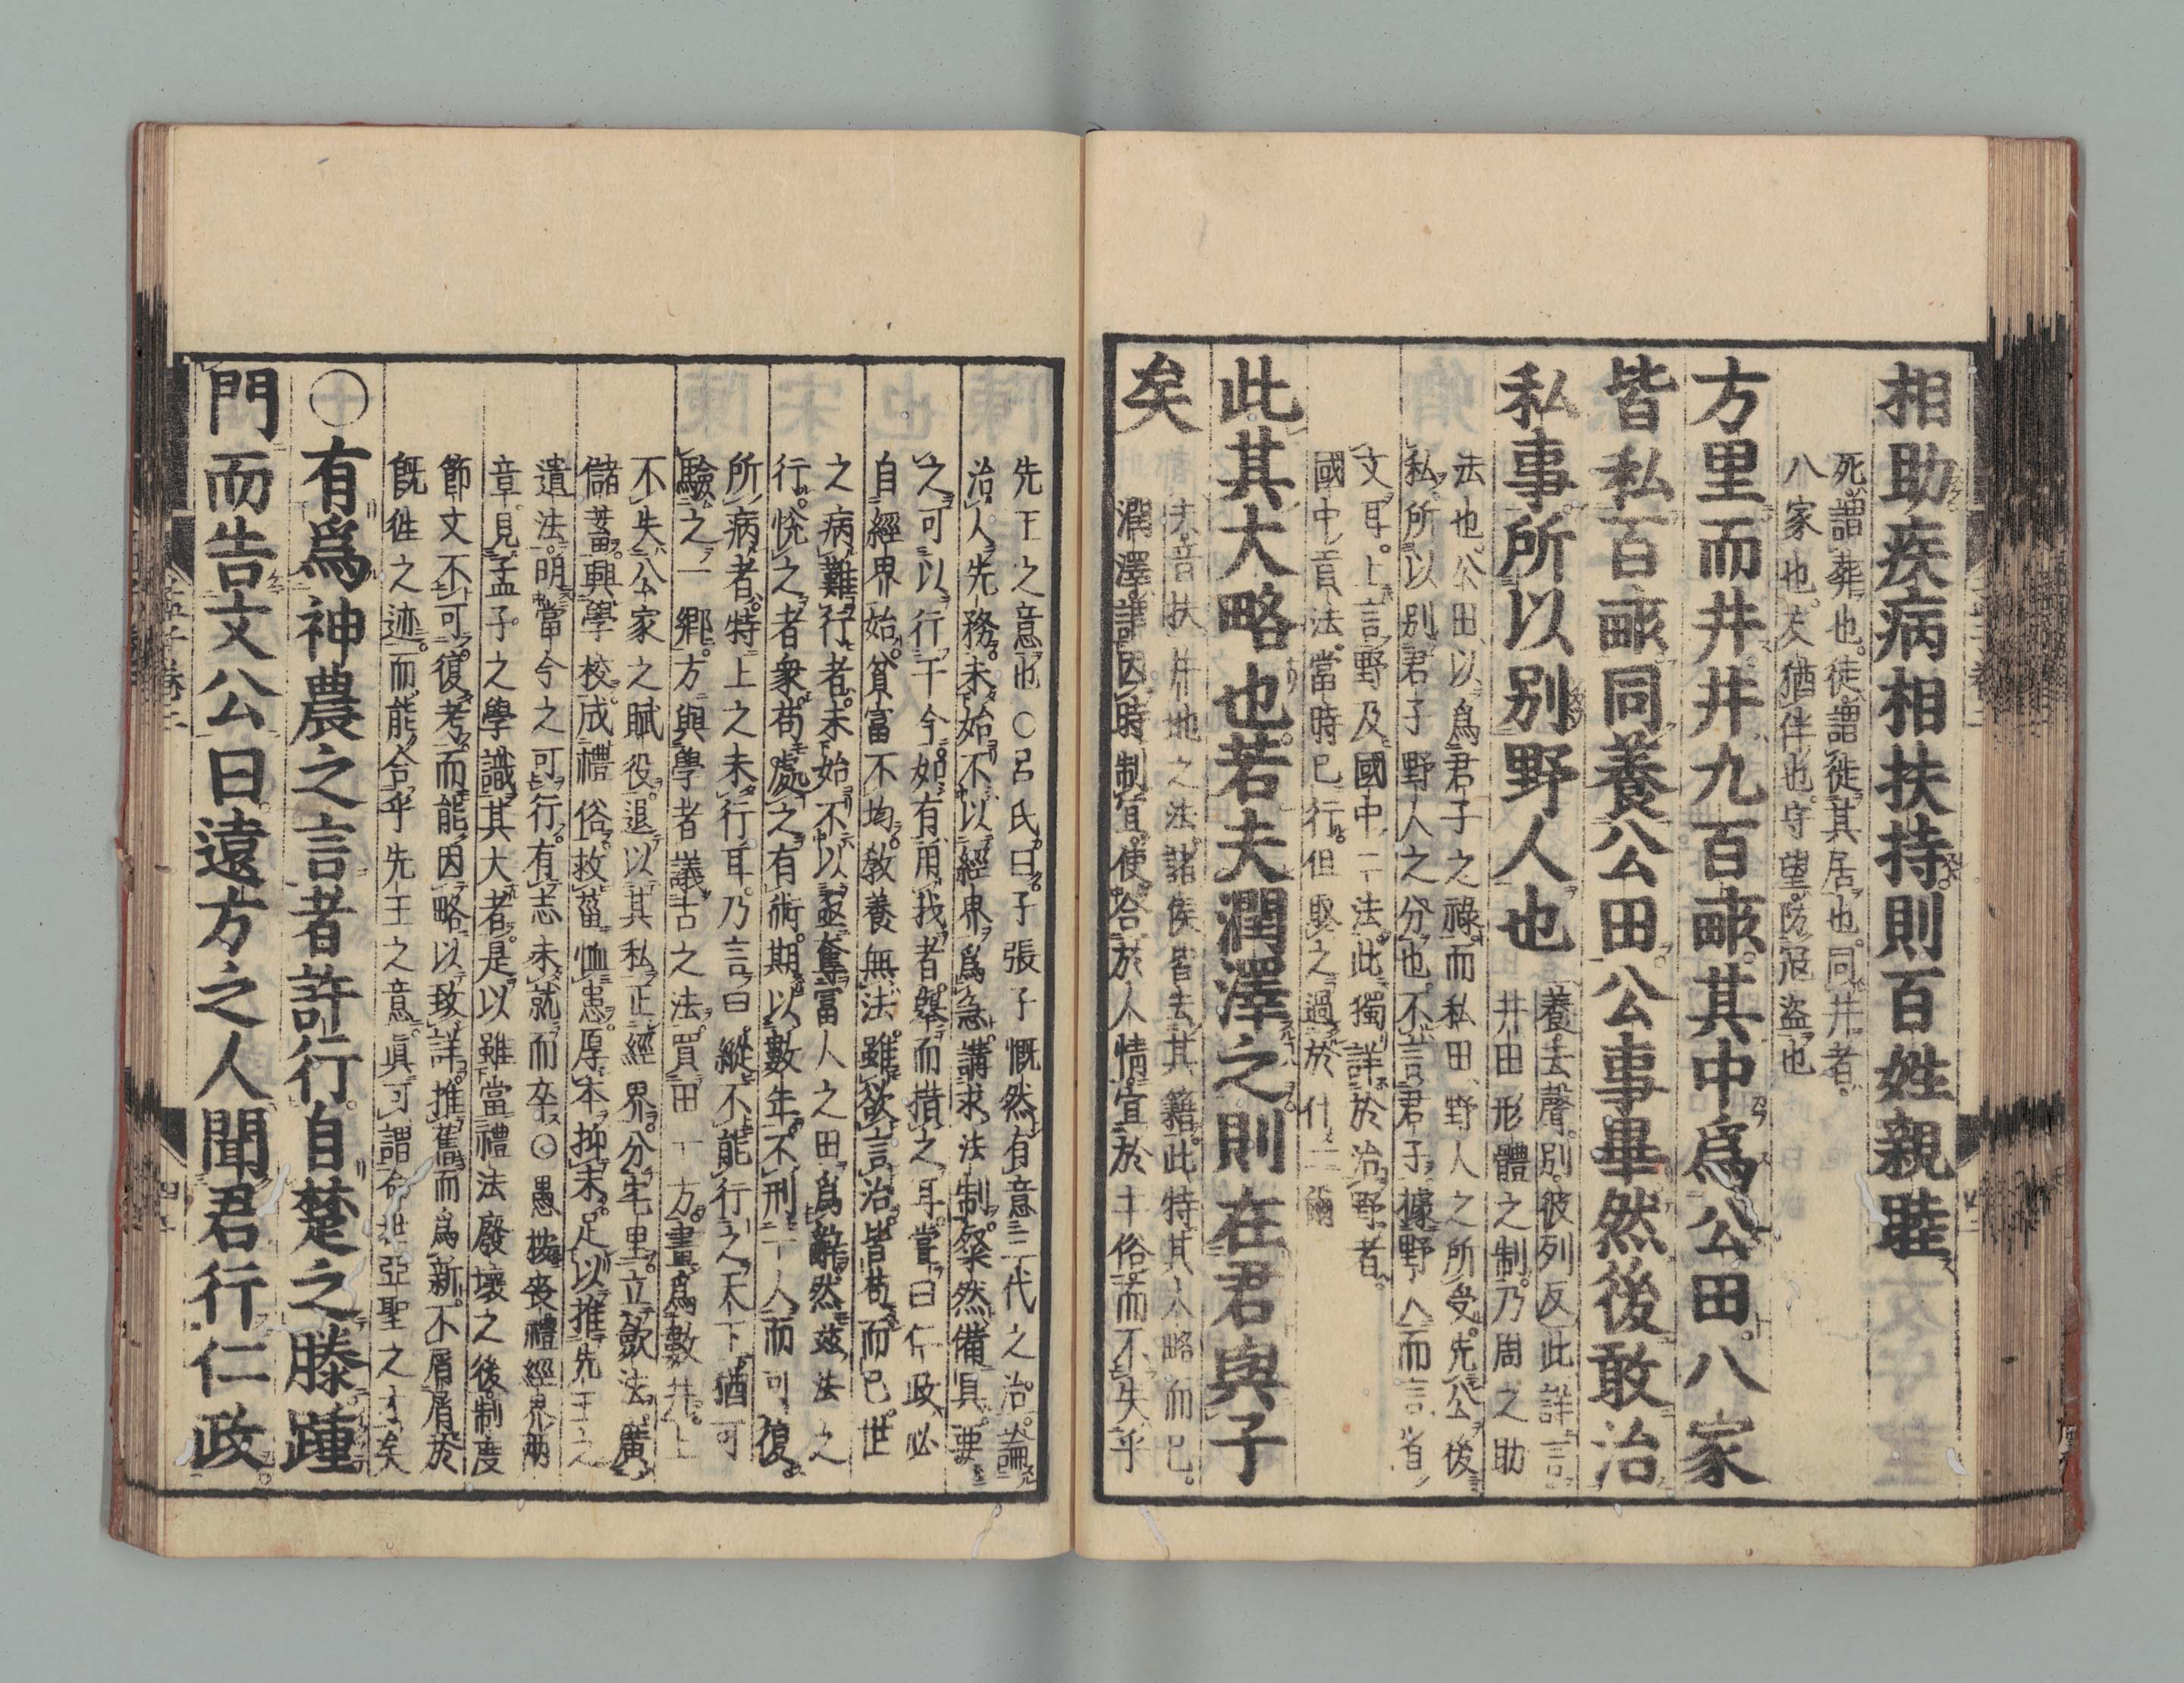 相助疾病相扶持則百姓親睦
死謂葬也徒謂徙其居也同井者
八家也友猶伴也守望防寇盜也
方里而井井九百畝其中爲公田八家
皆私百畝同養公田公事畢然後敢治
私事所以別野人也
養去聲別彼列反此詳言
井田形體之制乃周之助
法也公田以爲君子之祿而私田野人之所受先公後
私所以別君子野人之分也不言君子據野人而言省
文耳上言野及國中二法此獨詳於治野者
國中貢法當時已行但取之過於什一爾
此其大略也若夫潤澤之則在君與子
矣
夫音扶井地之法諸侯皆去其籍此特其大略而已
潤澤謂因時制宜使合於人情宜於土俗而不失乎
先王之意也○呂氏曰子張子慨然有意三代之治論
治人先務未始不以經界爲急講求法制粲然備具要
之可以行于今如有用我者舉而措之耳嘗曰仁政必
自經界始貧富不均敎養無法雖欲言治皆苟而已世
之病難行者未始不以亟奪富人之田爲辭然茲法之
行悅之者衆苟處之有術期以數年不刑一人而可復
所病者特上之未行耳乃言曰縱不能行之天下猶可
驗之一鄕方與學者議古之法買田一方畫爲數井上
不失公家之賦役退以其私正經界分宅里立斂法廣
儲蓄興學校成禮俗救菑恤患厚本抑末足以推先王之
遺法明當今之可行有志未就而卒○愚按喪禮經界兩
章見孟子之學識其大者是以雖當禮法廢壞之後制度
節文不可復考而能因略以致詳推舊而爲新不屑屑於
旣往之迹而能合乎先王之意眞可謂命世亞聖之才矣
○有爲神農之言者許行自楚之滕踵
門而告文公曰遠方之人聞君行仁政